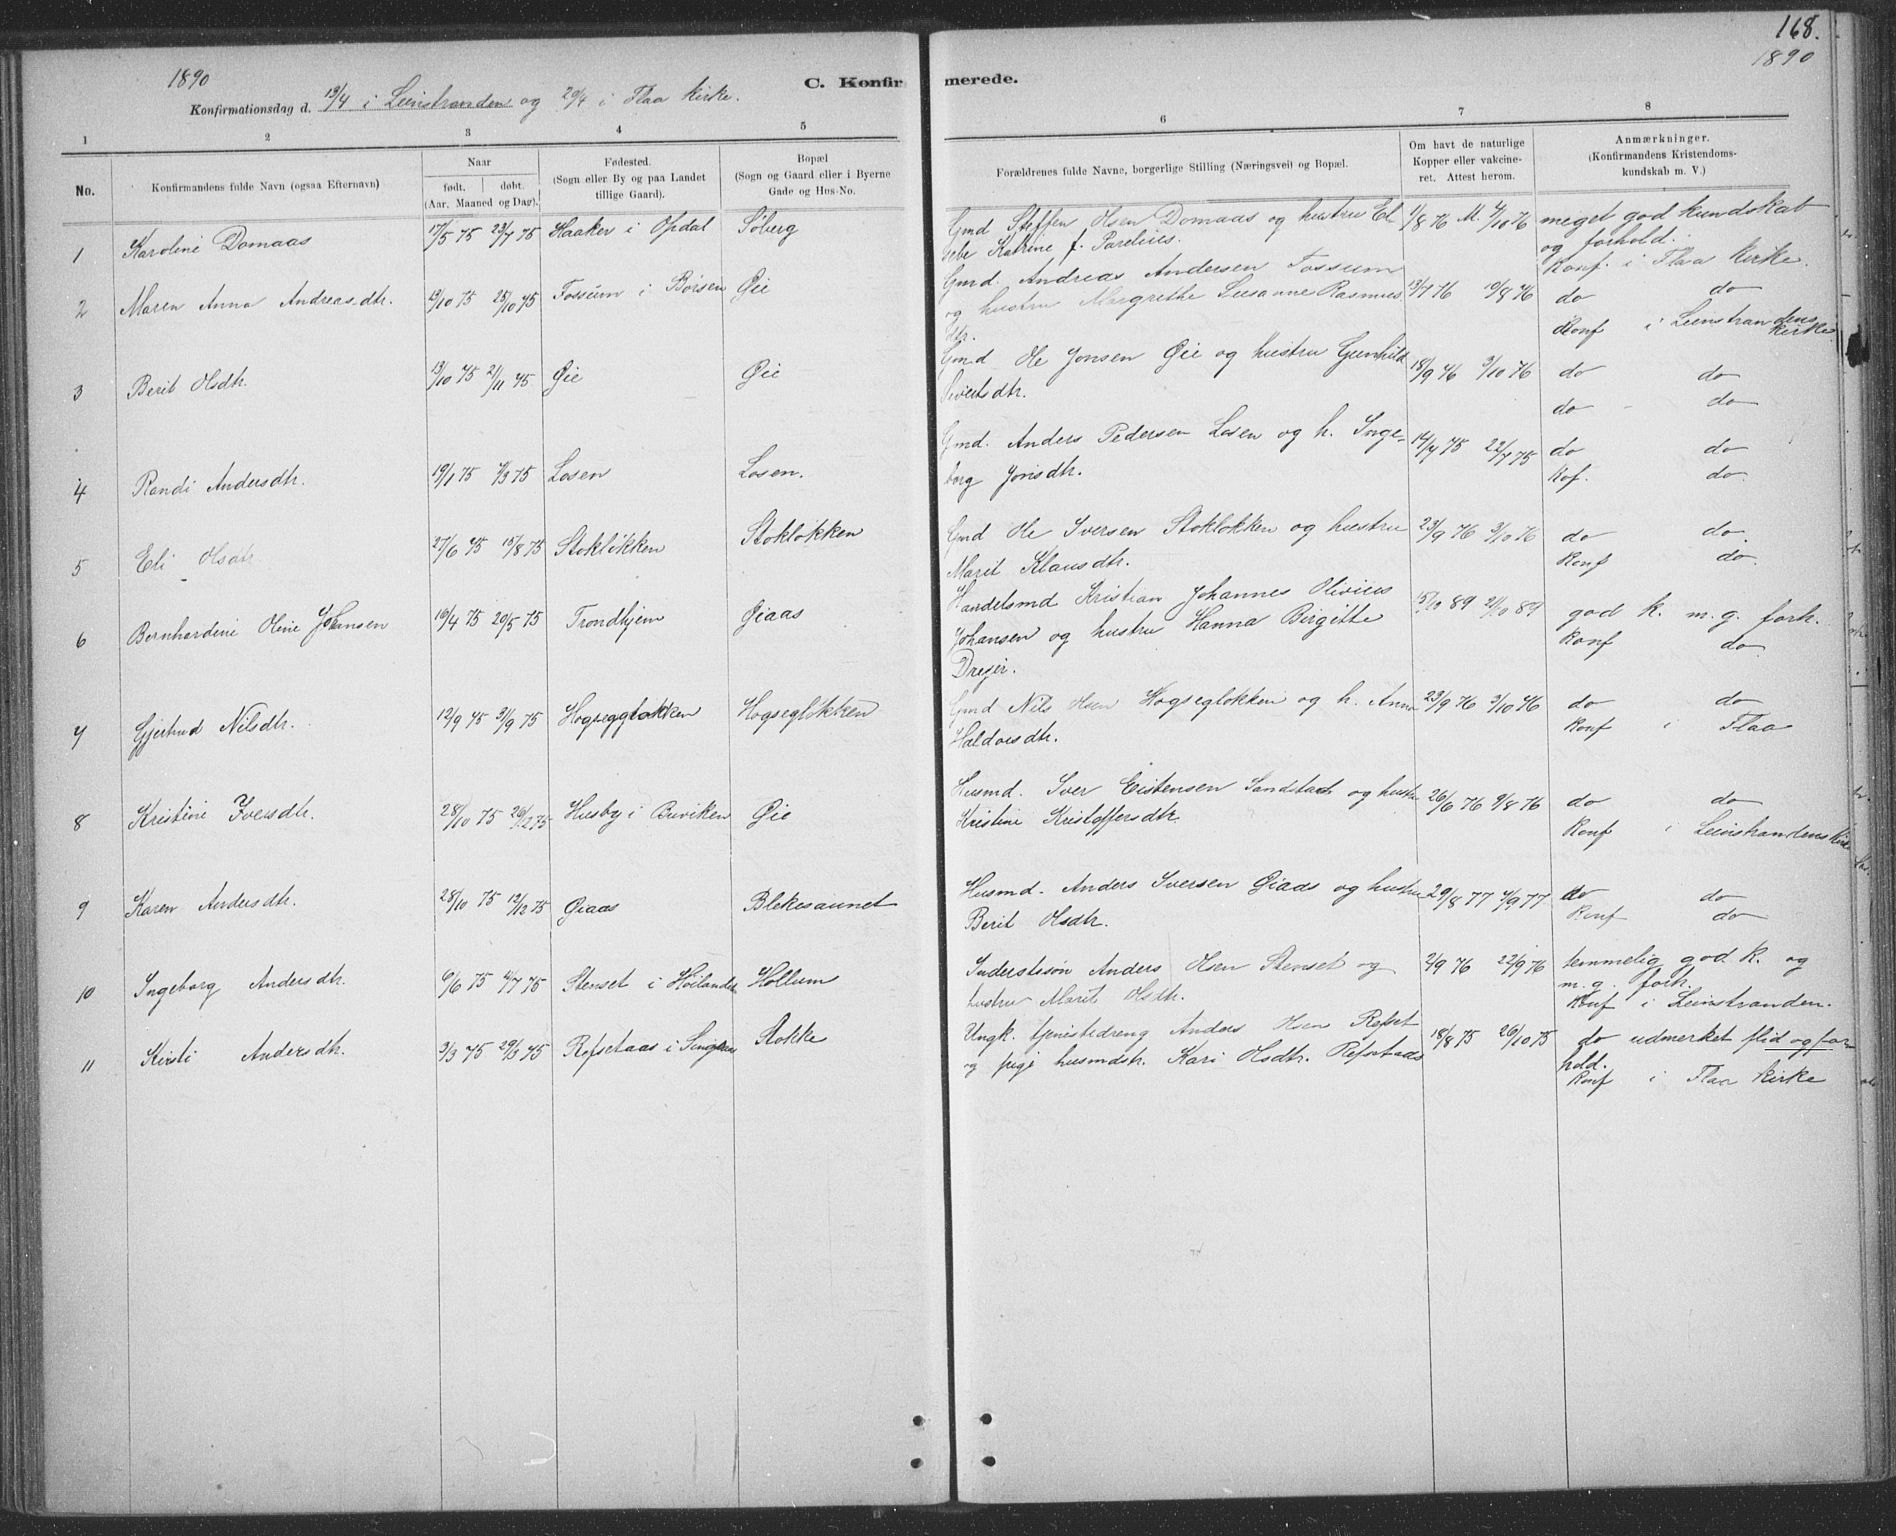 168.
1890 1890
C. Konfirmerede.
Konfirmationsdag d. 13/4 i Leinstranden og 20/4 i Flaa Kirke.
1 2 3 4 5 6 7 8
No. Konfirmandens fulde Navn (ogsaa Efternavn) Naar født. døbt. (Aar, Maaned og Dag). Fødested. (Sogn eller By og paa Landet tillige Gaard). Bopæl (Sogn og Gaard eller i Byerne Gade og Hus-No. Forældrenes fulde Navne, borgerlige Stilling (Næringsvei) og Bopæl. Om havt de naturlige Kopper eller vakcineret. Attest herom. Anmærkninger. (Konfirmandens Kristendomskundskab m. V.)
1 Karoline Domaas 17/5 75 23/7 75 Haaker i Opdal Søberg Gmd Steffen Olsen Domaas og hustru El 1/8 76 M. 4/10 76 meget god kundskab
Katrine f. Parelius. og forhold.
Konf. i Flaa Kirke.
2 Maren Anna Andreasdtr. 19/10 75 25/10 75 Fossum i Børsen Øie Gmd. Andreas Andersen Fossum 13/7 76 19/8 76 do do
og hustru Margrethe Susanne Rasmus
dtr. Konf i Leinstrandens Kirke
3 Berit Olsdtr. 13/10 75 21/11 75 Øie Øie Gmd Ole Jonsen Øie og hustru Gunhild 18/9 76 3/10 76 do do
Sivertsdtr. do - do
4 Randi Andersdtr. 19/1 75 /3 75 Losen Losen. Gmd. Anders Pedersen Losen og h. Inge- 14/7 75 22/7 75 do do
borg Jonsdtr. Kof. do.
5 Eli Olsdtr. 27/6 75 15/8 75 Stokløkken Stokløkken Gmd Ole Iversen Stokløkken og hustru 23/9 76 3/10 76 do do.
Marit Klausdtr. Konf do.
6 Bernhardine Oline Johansen 16/4 75 20/5 75 Trondhjem Øiaas Handelsmd Kristian Johannes Olivius 15/10 89 21/10 89 god k. m. g. forh.
Johansen og hustru Hanna Birgitte Konf do
Drejer.
7 Gjertrud Nilsdtr. 12/9 75 3/9 75 Hogseggløkken Hogsegløkken Gmd Nils Olsen Hogsegløkken og h. Anne 23/9 76 3/10 76 do do
Haldorsdtr. Konf i Flaa
8 Kristine Iversdtr. 28/10 75 26/12 75 Husby i Buviken Øie Husmd. Iver Eistensen Sandstad og hustru 26/6 76 9/8 76 do do
Kristine Kristoffersdtr. Konf i Leinstrandens Kirke
9 Karen Andersdtr. 28/10 75 12/12 75 Øiaas Blekesaunet Husmd. Anders Iversen Øiaas og hustru 29/8 77 4/9 77 do do
Berit Olsdtr. Konf do
10 Ingeborg Andersdtr. 6/6 75 4/7 75 Stenset i Høilandet Hollum Inderstssøn Anders Olsen Stenset og 2/9 76 22/9 76 temmelig god k. og
hustru Marit Olsdtr. m. g. forh.
Konf i Leinstranden.
11 Kirsti Andersdtr. 3/3 75 29/3 75 Refsetaas i Singsaas Stokke Ungk. tjenstedreng Anders Olsen Refset 18/8 75 26/10 75 do udmerket flid og for-
og pige husmdstr. Kari Olsdtr. Refsetaas hold.
Konf i Flaa Kirke